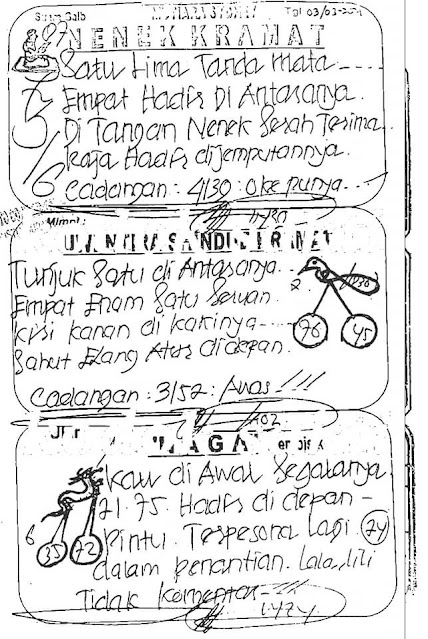 Tgl 03/03-20
87
NENEK KRAMAT
Satu Lima Tanda Mata ----
Empat Hadir Di Antaranya.
Di Tangan Nenek Serah Terima
Raja Hadir dijemputannya.
3/6
Cadangan : 4/30 : Oke punya ---
Mimpi :
Tunjuk Satu di Antaranya.
Empat Enam Satu Seruan.
Kiri Kanan di kakinya ----
Sahut Elang Atas didepan.
2
76
45
Cadangan : 3/52 : Awas !!!
NAGA
Kau di Awal Segalanya
71. 75. Hadir di depan -
Pintu. Terpesona Lagi 74
dalam penantian. Lala, lili
Tidak Komentar --- !!!
6
35
72